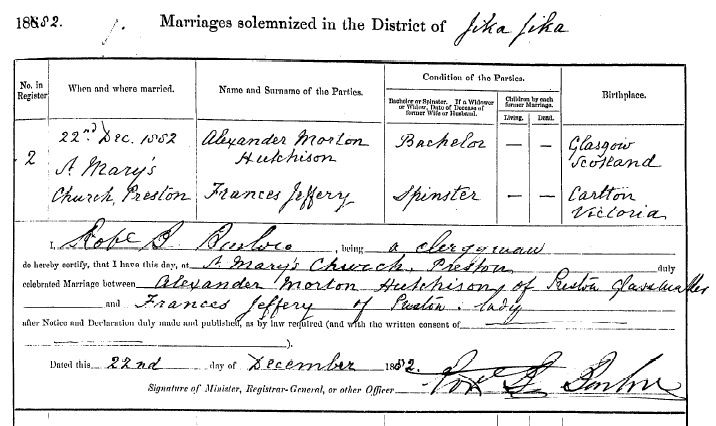 1882. Marriages solemnized in the District of Jika Jika
No. in Register
When and where married.
Name and Surname of the Parties.
Condition of the Parties.
Bachelor or Spinster. If a Widower or Widow, Date of Decease of former Wife or Husband.
Children by each former Marriage.
Living. Dead.
Birthplace.
2
22nd Dec. 1882
St Mary's
Church, Preston
Alexander Morton
Hutchison
Bachelor — —
Glasgow
Scotland
Frances Jeffery
Spinster — —
Carlton
Victoria
I, Robt B , being a clergyman
do hereby certify, that I have this day, at St Mary's Church, Preston duly
celebrated Marriage between Alexander Morton Hutchison, of Preston Glassmaker
and Frances Jeffery of Preston. lady
after Notice and Declaration duly made and published, as by law required (and with the written consent of
).
Dated this 22nd day of December 1882.
Signature of Minister, Registrar-General, or other Officer